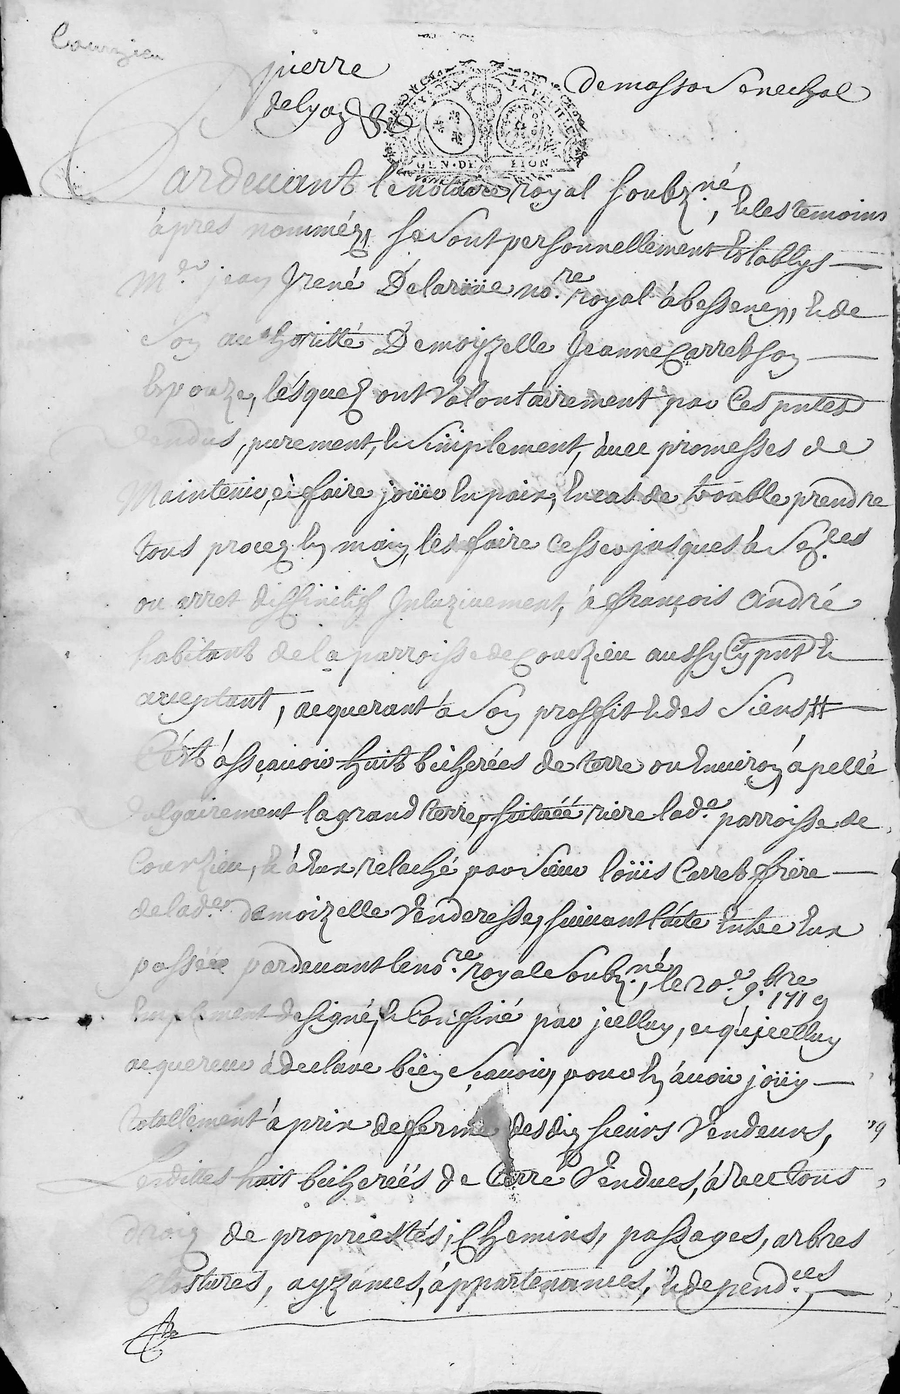 Courzieu
pierre
delyaz
demasso Senechal
GEN · DE LION
Pardeuant le notaire royal soubz.né, & les temoins
àpres nomméz, se sont personnellement Establys
M.re jean Jrené Delarüüe no.re royal à besseney, & de
Son authoritté Demoyzelle Jeanne Carret son
Epouze, lesquelz ont Volontairement par Ces pntes
Vendus, purement, & Simplement, àuec promesses de
Maintenir, & faire joüir En paix, En cas de trouble prendre
tous procez En main, les faire cesser jusques à Se.ces
ou arret diffinitif Jncluzivement, à françois André
habitant de la parroisse de Courzieu aussy Cy pnt &
acceptant, acquerant à Son proffit & des Siens
C'est àsscauoir huit bicherées de terre ou Enuiron, àpellé
Vulgairement la grand terre, scituéé riere lad.e parroisse de
Courzieu, & à Eux relaché par Sieur loüis Carret frère
de lad.e demoizelle Venderesse, suiuant l'acte Entre Eux
passée pardeuant le no.re royal Soubz.né, le 20.e 9.bre 1719
Emplement designé, & Confiné par jcelluy, & qu'jcelluy
acquereur à declaré bien Scauoir, pour En àuoir joüy
totallement à prix de fferme desdiz sieurs Vendeurs,
Lesdittes huit bicheréés de terre Vendues, àvec tous
droiz de proprietés, Chemins, passages, arbres
Clostures, ayzances, àppartenances, & depend.ces